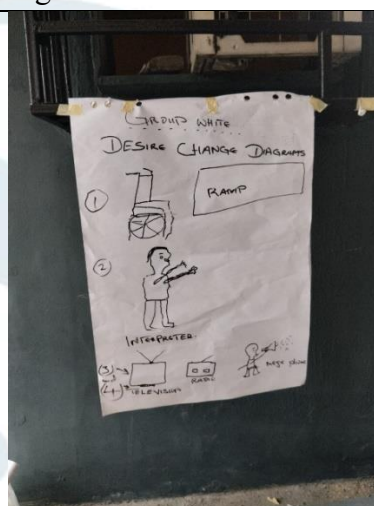 GROUP WHITE
DESIRE CHANGE DIAGRAMS
①
RAMP
②
INTERPRETER
(3)
(4)
TELEVISION
RADIO